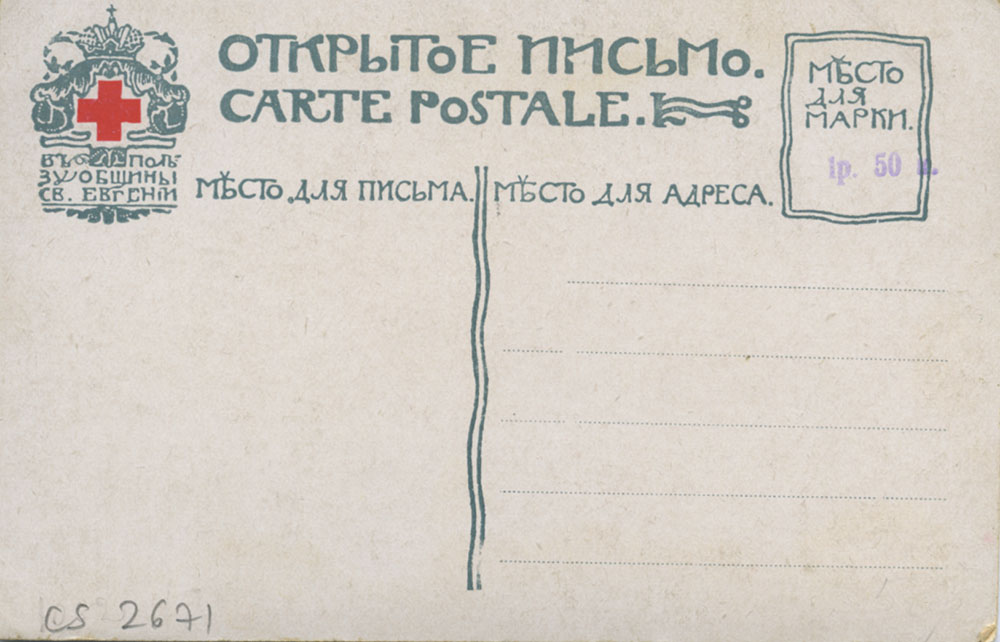 ОТКРЫТОЕ ПИСЬМО.
CARTE POSTALE.
ВЪ ПОЛЬ-
ЗУ ОБЩИНЫ
СВ. ЕВГЕНІИ
МѢСТО ДЛЯ ПИСЬМА.
МѢСТО ДЛЯ АДРЕСА.
МѢСТО
ДЛЯ
МАРКИ.
1р. 50 к.
CS 2671